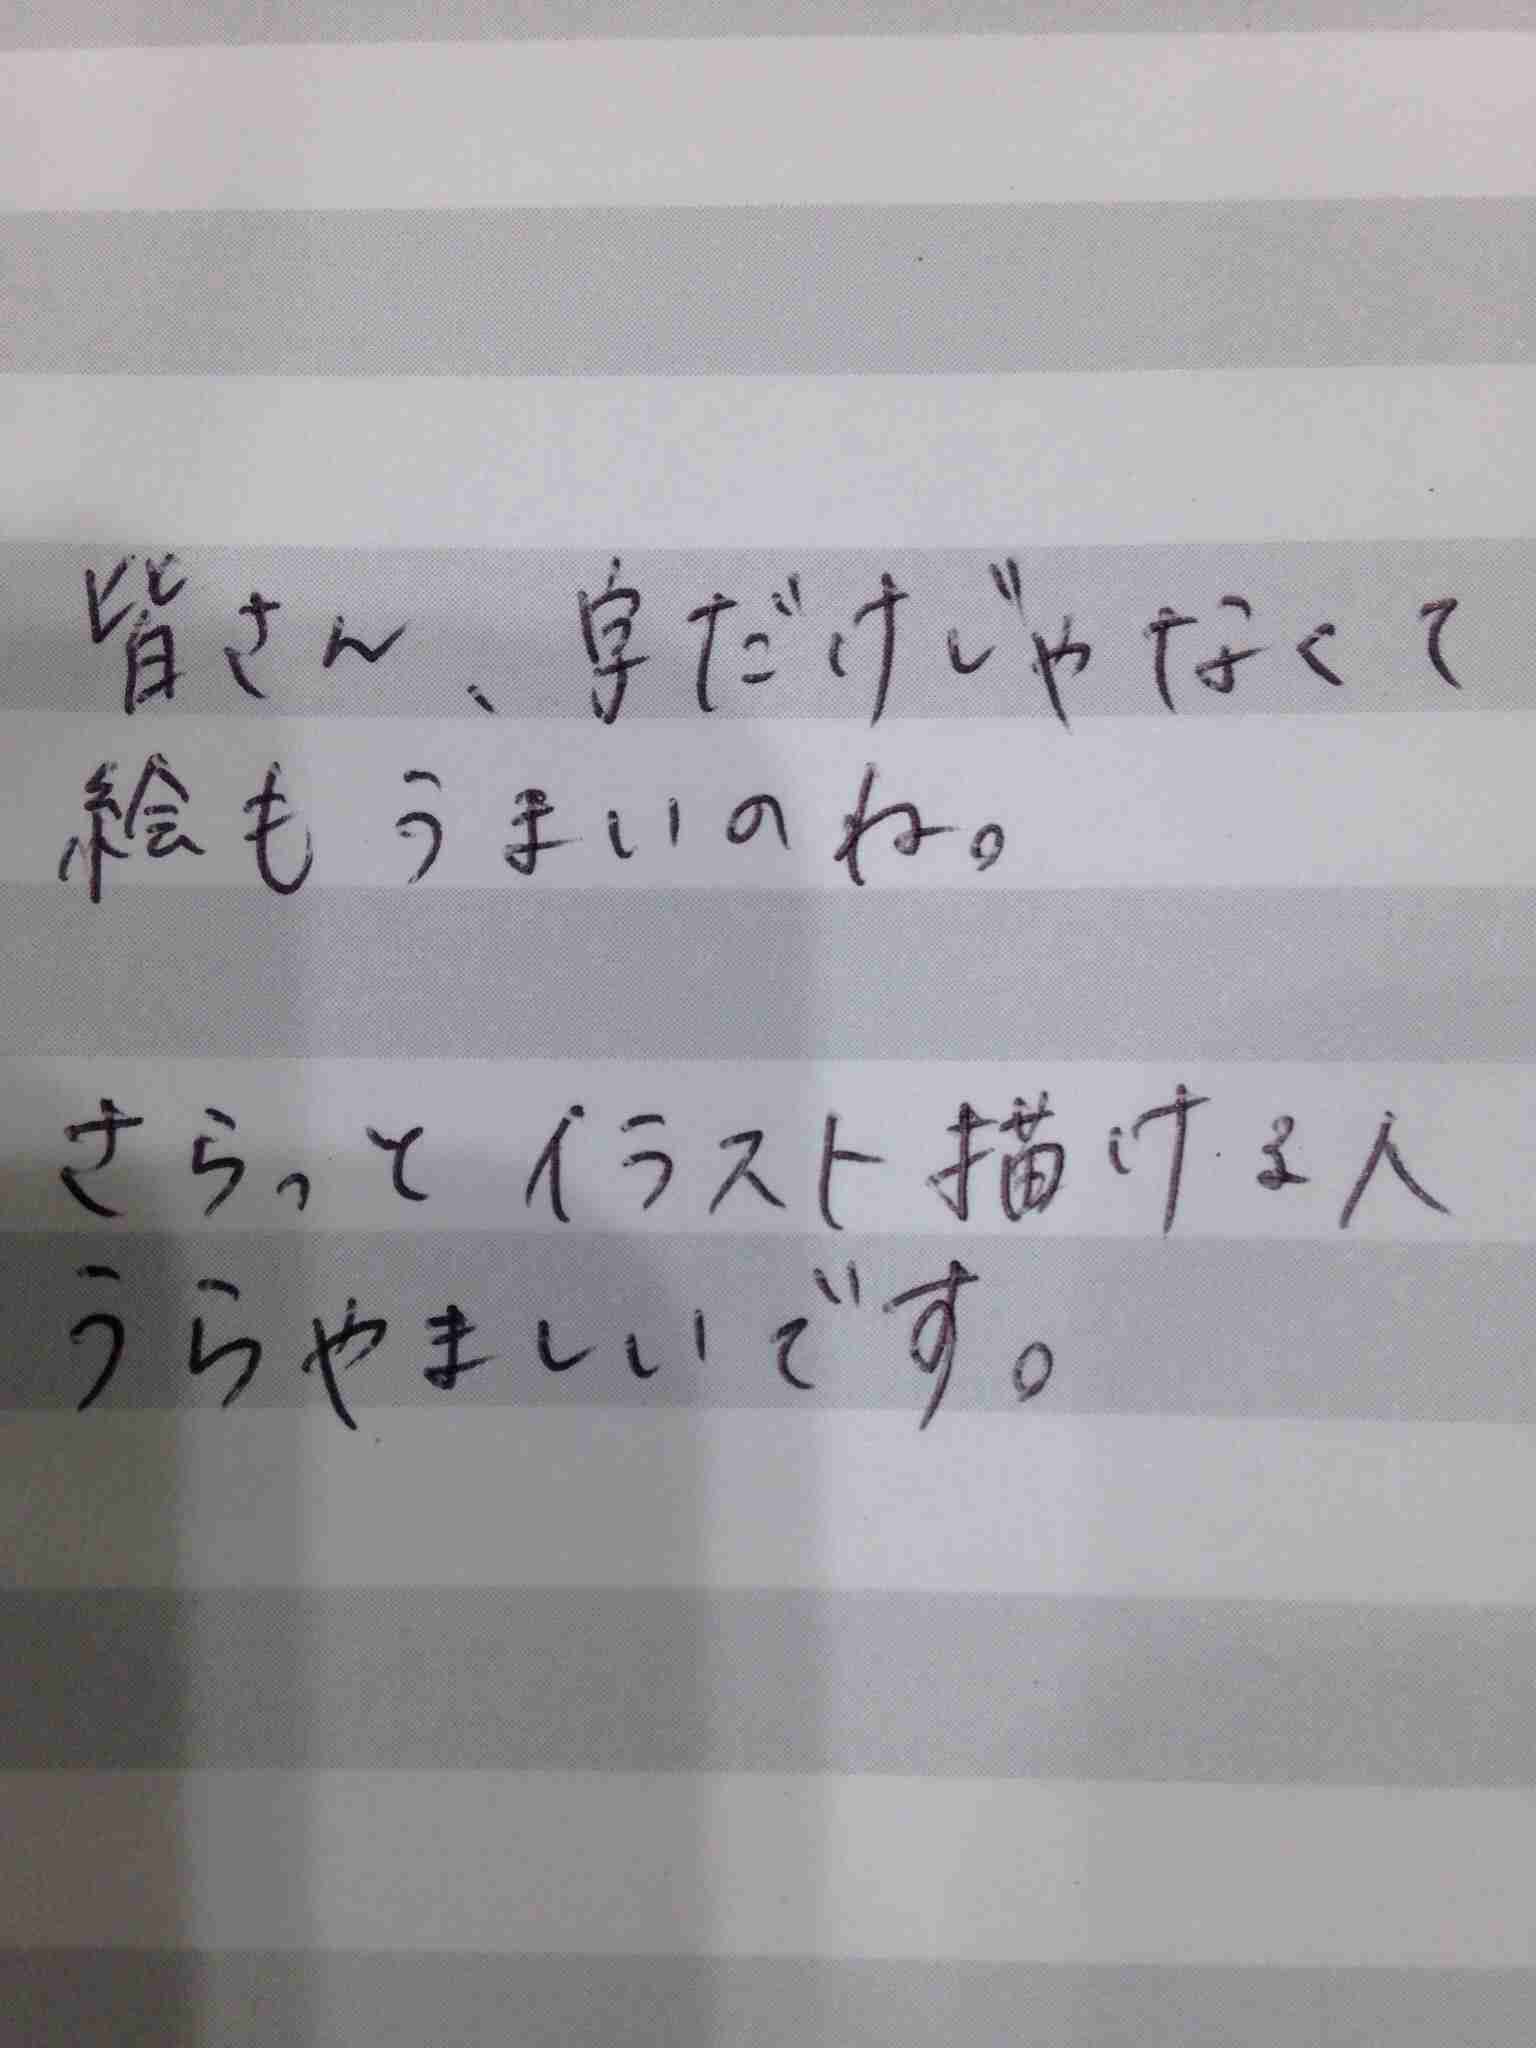 皆さん、字だけじゃなくて
絵もうまいのね。
さらっとイラスト描ける人
うらやましいです。